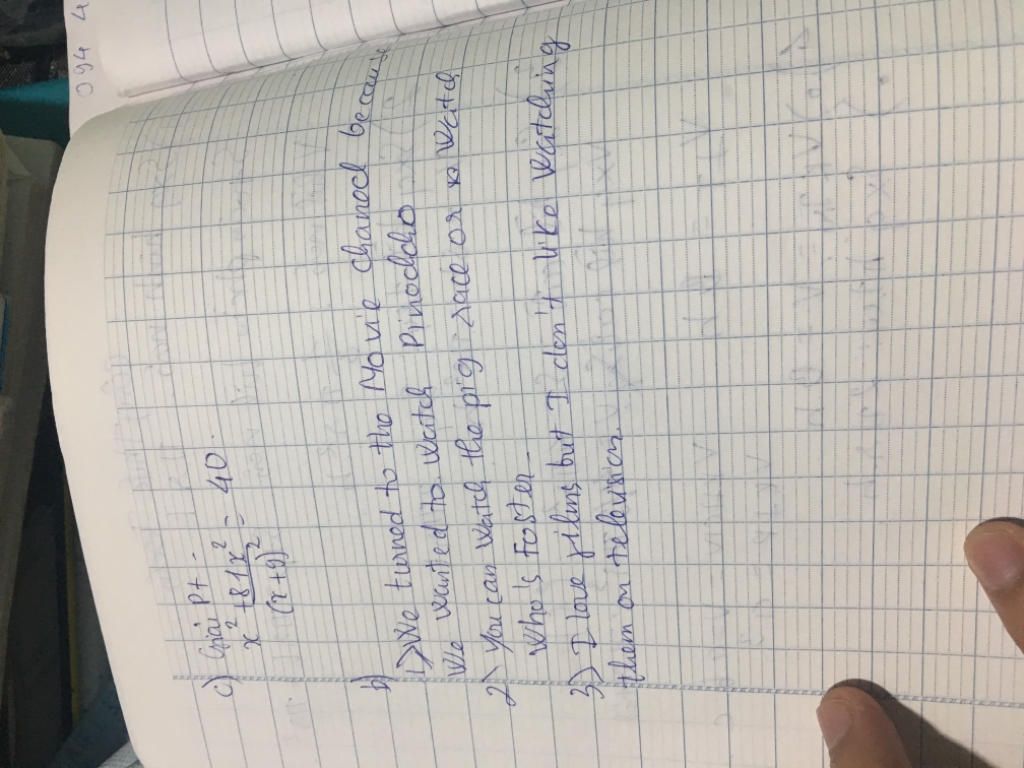 094 4
c) Giải pt.
x² + 81x²/(x+9)² = 40.
b)
1) We turned to the Movie chanod because
We wanted to watch Pinochcho
2) You can watch the pig race or watch
Who's Foster.
3) I love films but I don't like watching
them on television.